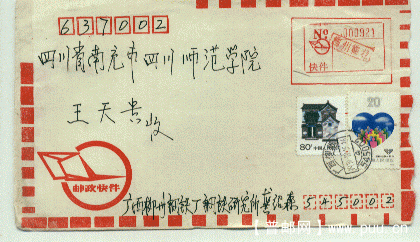 637002
No 000921
快件
四川省南充市四川师范学院
王天贵收
80分
20
邮政快件
广西柳州钢铁厂钢铁研究所
545002
【普邮网】www.puu.cn